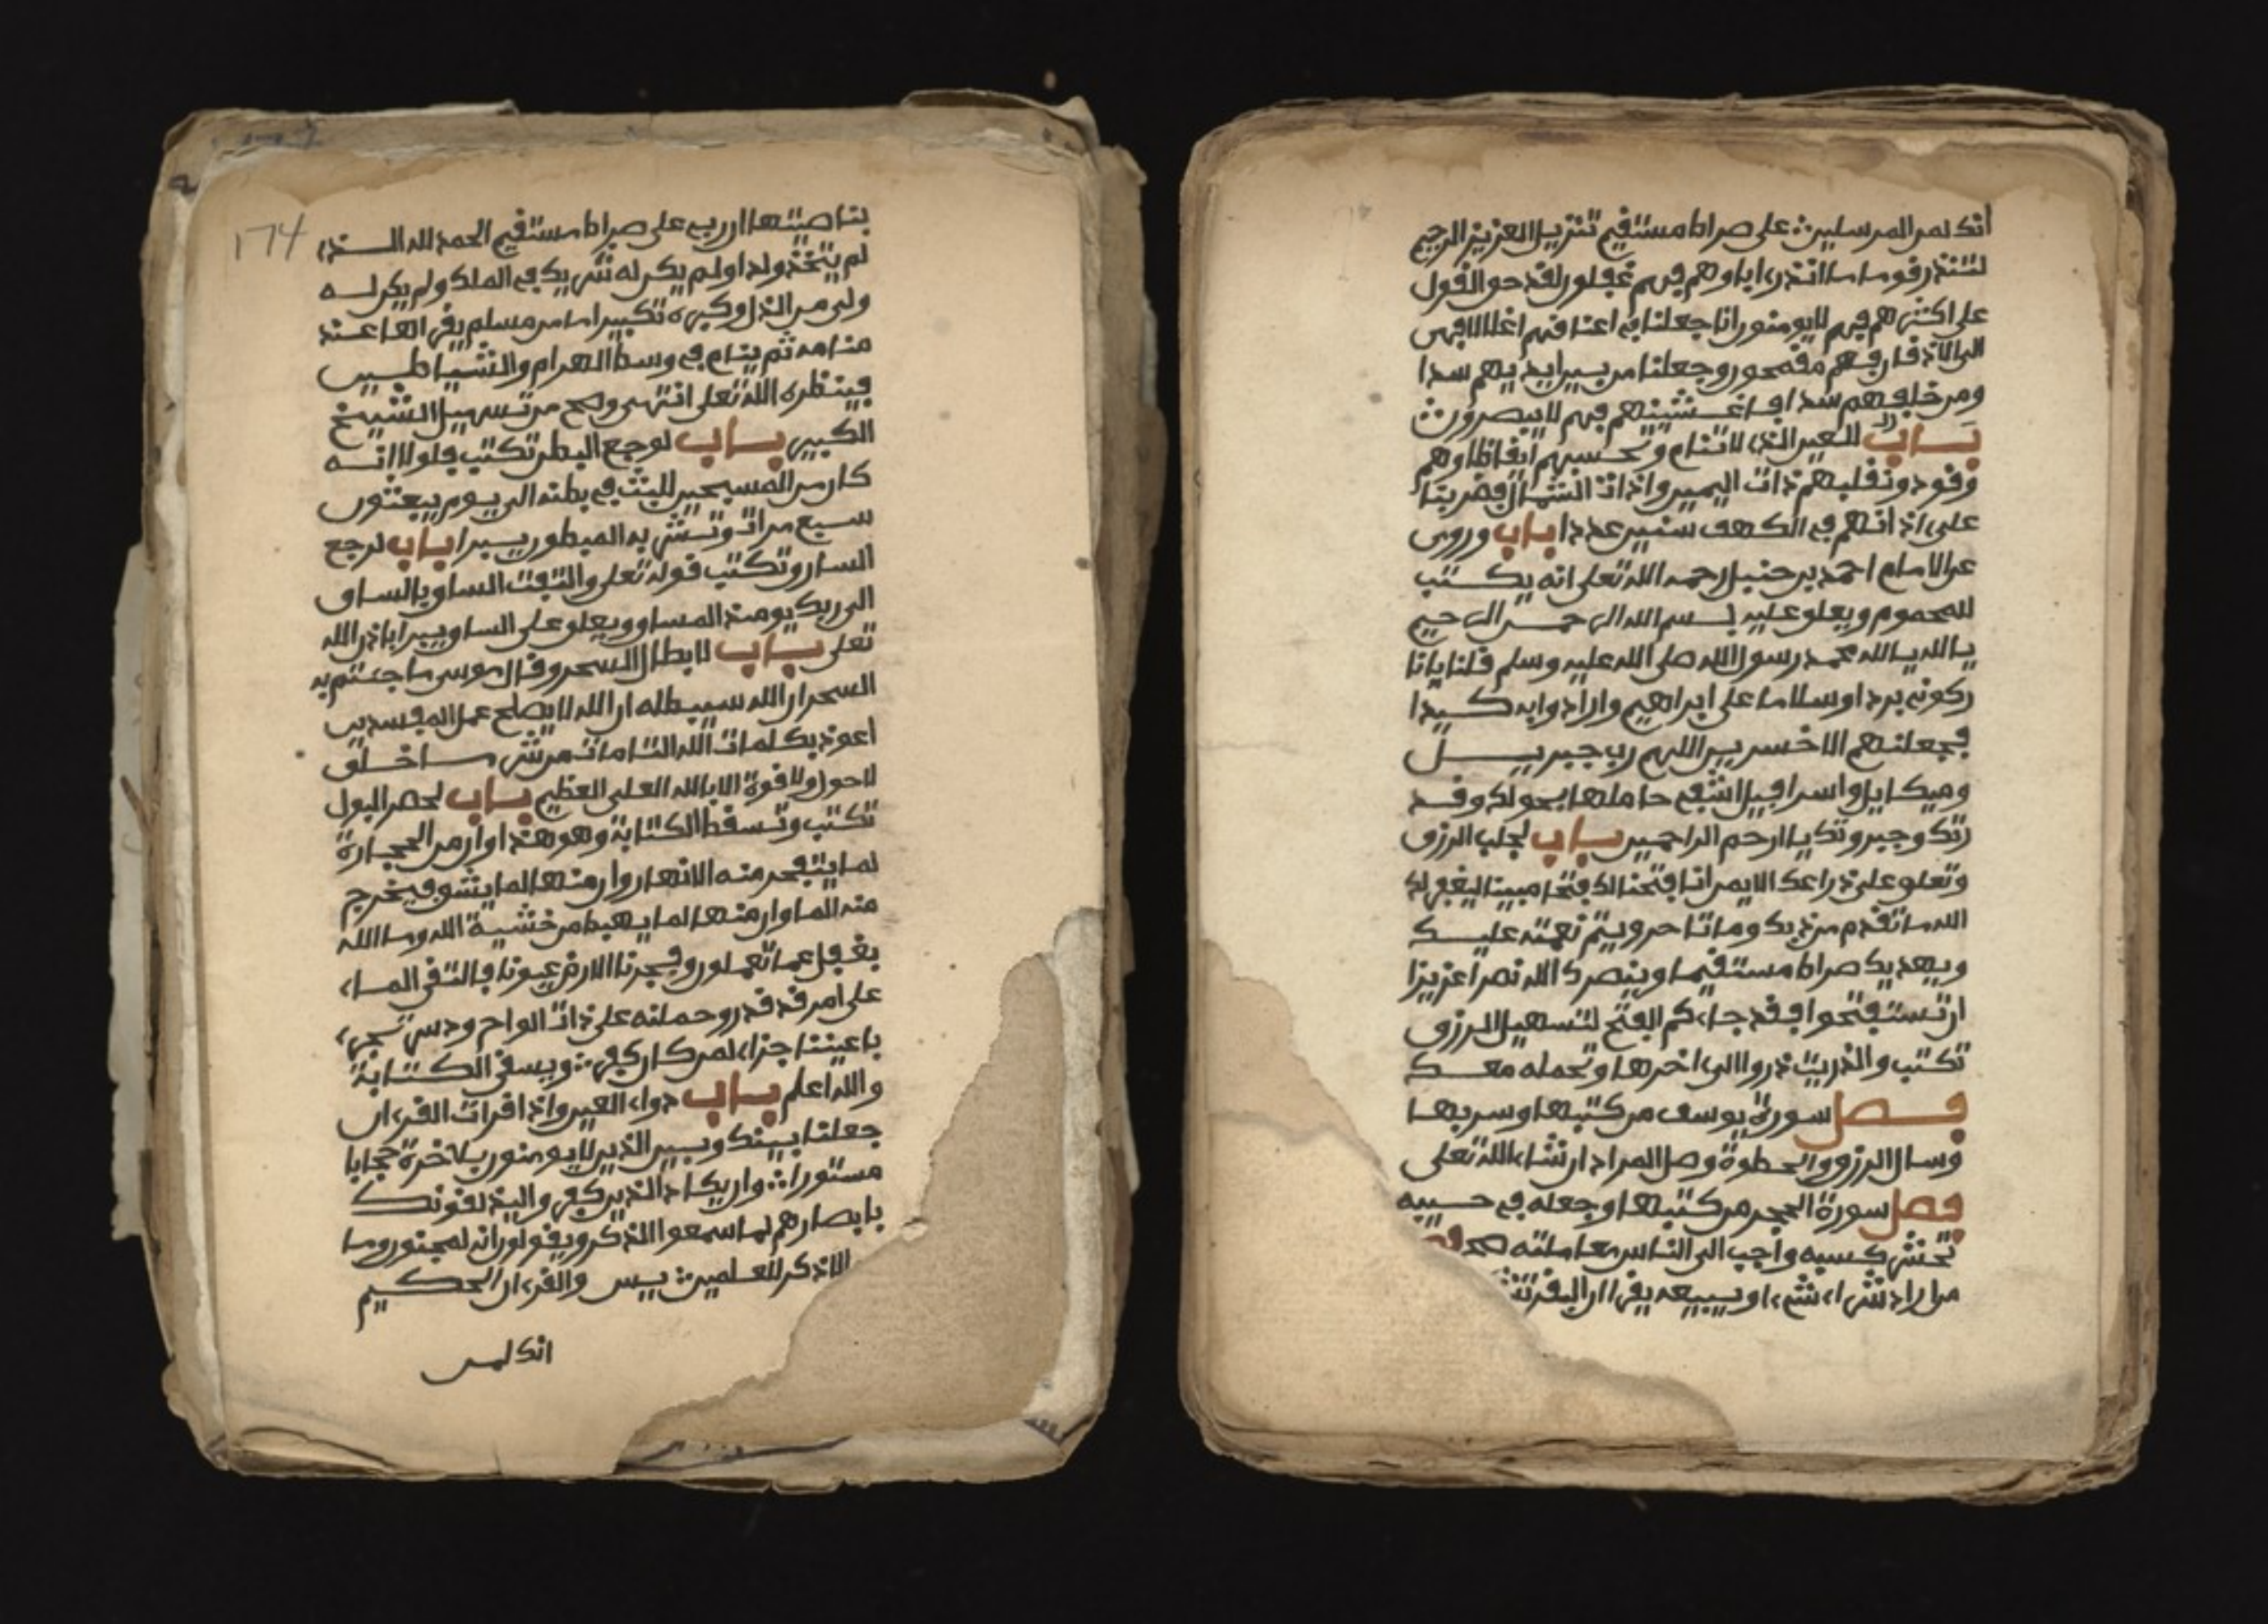 174
بناصيتها ان ربي على صراط مستقيم الحمد لله الـذي
لم يتخذ ولدا ولم يكن له شريك في الملك ولم يكن له
ولي من الذل وكبره تكبيرا ما من مسلم يقرأها عند
منامه ثم ينام في وسط الهرام والشياطين
فينظره الله تعلى انتهى وصح من تسهيل الشيخ
الكبير باب لوجع البطن تكتب فلولا انه
كان من المسبحين للبث في بطنه الى يوم يبعثون
سبع مرات وتشرب به المبطون يبرا باب لوجع
الساق وتكتب قوله تعلى والتفت الساق بالساق
الى ربك يومئذ المساق ويعلق على الساق يبرا باذن الله
تعلى باب لابطال السحر وقال موسى ما جئتم به
السحر ان الله سيبطله ان الله لا يصلح عمل المفسدين
اعوذ بكلمات الله التامات من شر ما خلق
لا حول ولا قوة الا بالله العلى العظيم باب لحصر البول
تكتب وتسقط الكتابة وهو هذا وان من الحجارة
لما يتفجر منه الانهار وان منها لما يشقق فيخرج
منه الما وان منها لما يهبط من خشية الله وما الله
بغفل عما تعملون وفجرنا الارض عيونا فالتقى الماء
على امر قد قدر وحملنه على ذات الواح ودسر تجري
باعيننا جزاء لمن كان كفر ويسقى الكتابة
والله اعلم باب دواء العين واذا قرات القرءان
جعلنا بينك وبين الذين لا يومنون بلاخرة حجابا
مستورا وان يكاد الذين كفروا ليزلقونك
بابصارهم لما سمعوا الذكر ويقولون انه لمجنون وما
الا ذكر للعلمين يس والقرءان الحكيم
انك لمن
انك لمن المرسلين على صراط مستقيم تنزيل العزيز الرحيم
لتنذر قوما ما انذر ءاباوهم فهم غفلون لقد حق القول
على اكثرهم فهم لا يومنون انا جعلنا في اعناقهم اغلالا فهى
الى الاذقان فهم مقمحون وجعلنا من بين ايديهم سدا
ومن خلفهم سدا فاغشينهم فهم لا يبصرون
باب للعين الذي لا تنام وتحسبهم ايقاظا وهم
رقود ونقلبهم ذات اليمين وذات الشمال فضربنا
على ءاذانهم في الكهف سنين عددا باب وروى
عن الامام احمد بن حنبل رحمه الله تعلى انه يكتب
للمحموم ويعلق عليه بسم الله الرحمن الرحيم
بالله يا الله محمد رسول الله صلى الله عليه وسلم قلنا يا نا
ر كوني بردا وسلاما على ابراهيم وارادوا به كيدا
فجعلنهم الاخسرين اللهم رب جبريل
وميكايل واسرافيل اشف حاملها بحولك وقد
رتك وجبروتك يا ارحم الراحمين باب لجلب الرزق
وتعلق على ذراعك الايمن انا فتحنا لك فتحا مبينا ليغفر لك
الله ما تقدم من ذنبك وما تاخر ويتم نعمته عليك
ويهديك صراطا مستقيما وينصرك الله نصرا عزيزا
ان تستفتحوا فقد جاءكم الفتح لتسهيل الرزق
تكتب والذريت ذروا الى اخرها وتحمله معك
فصل سورة يوسف من كتبها وشربها
وسال الرزق والحظوة وصل المراد ان شاء الله تعلى
فصل سورة الحجر من كتبها وجعله في جيبه
تحشر كسبه واحب الى الناس معاملته
من اراد شراء شيء او يبيعه يقرا ان البقر تشبه